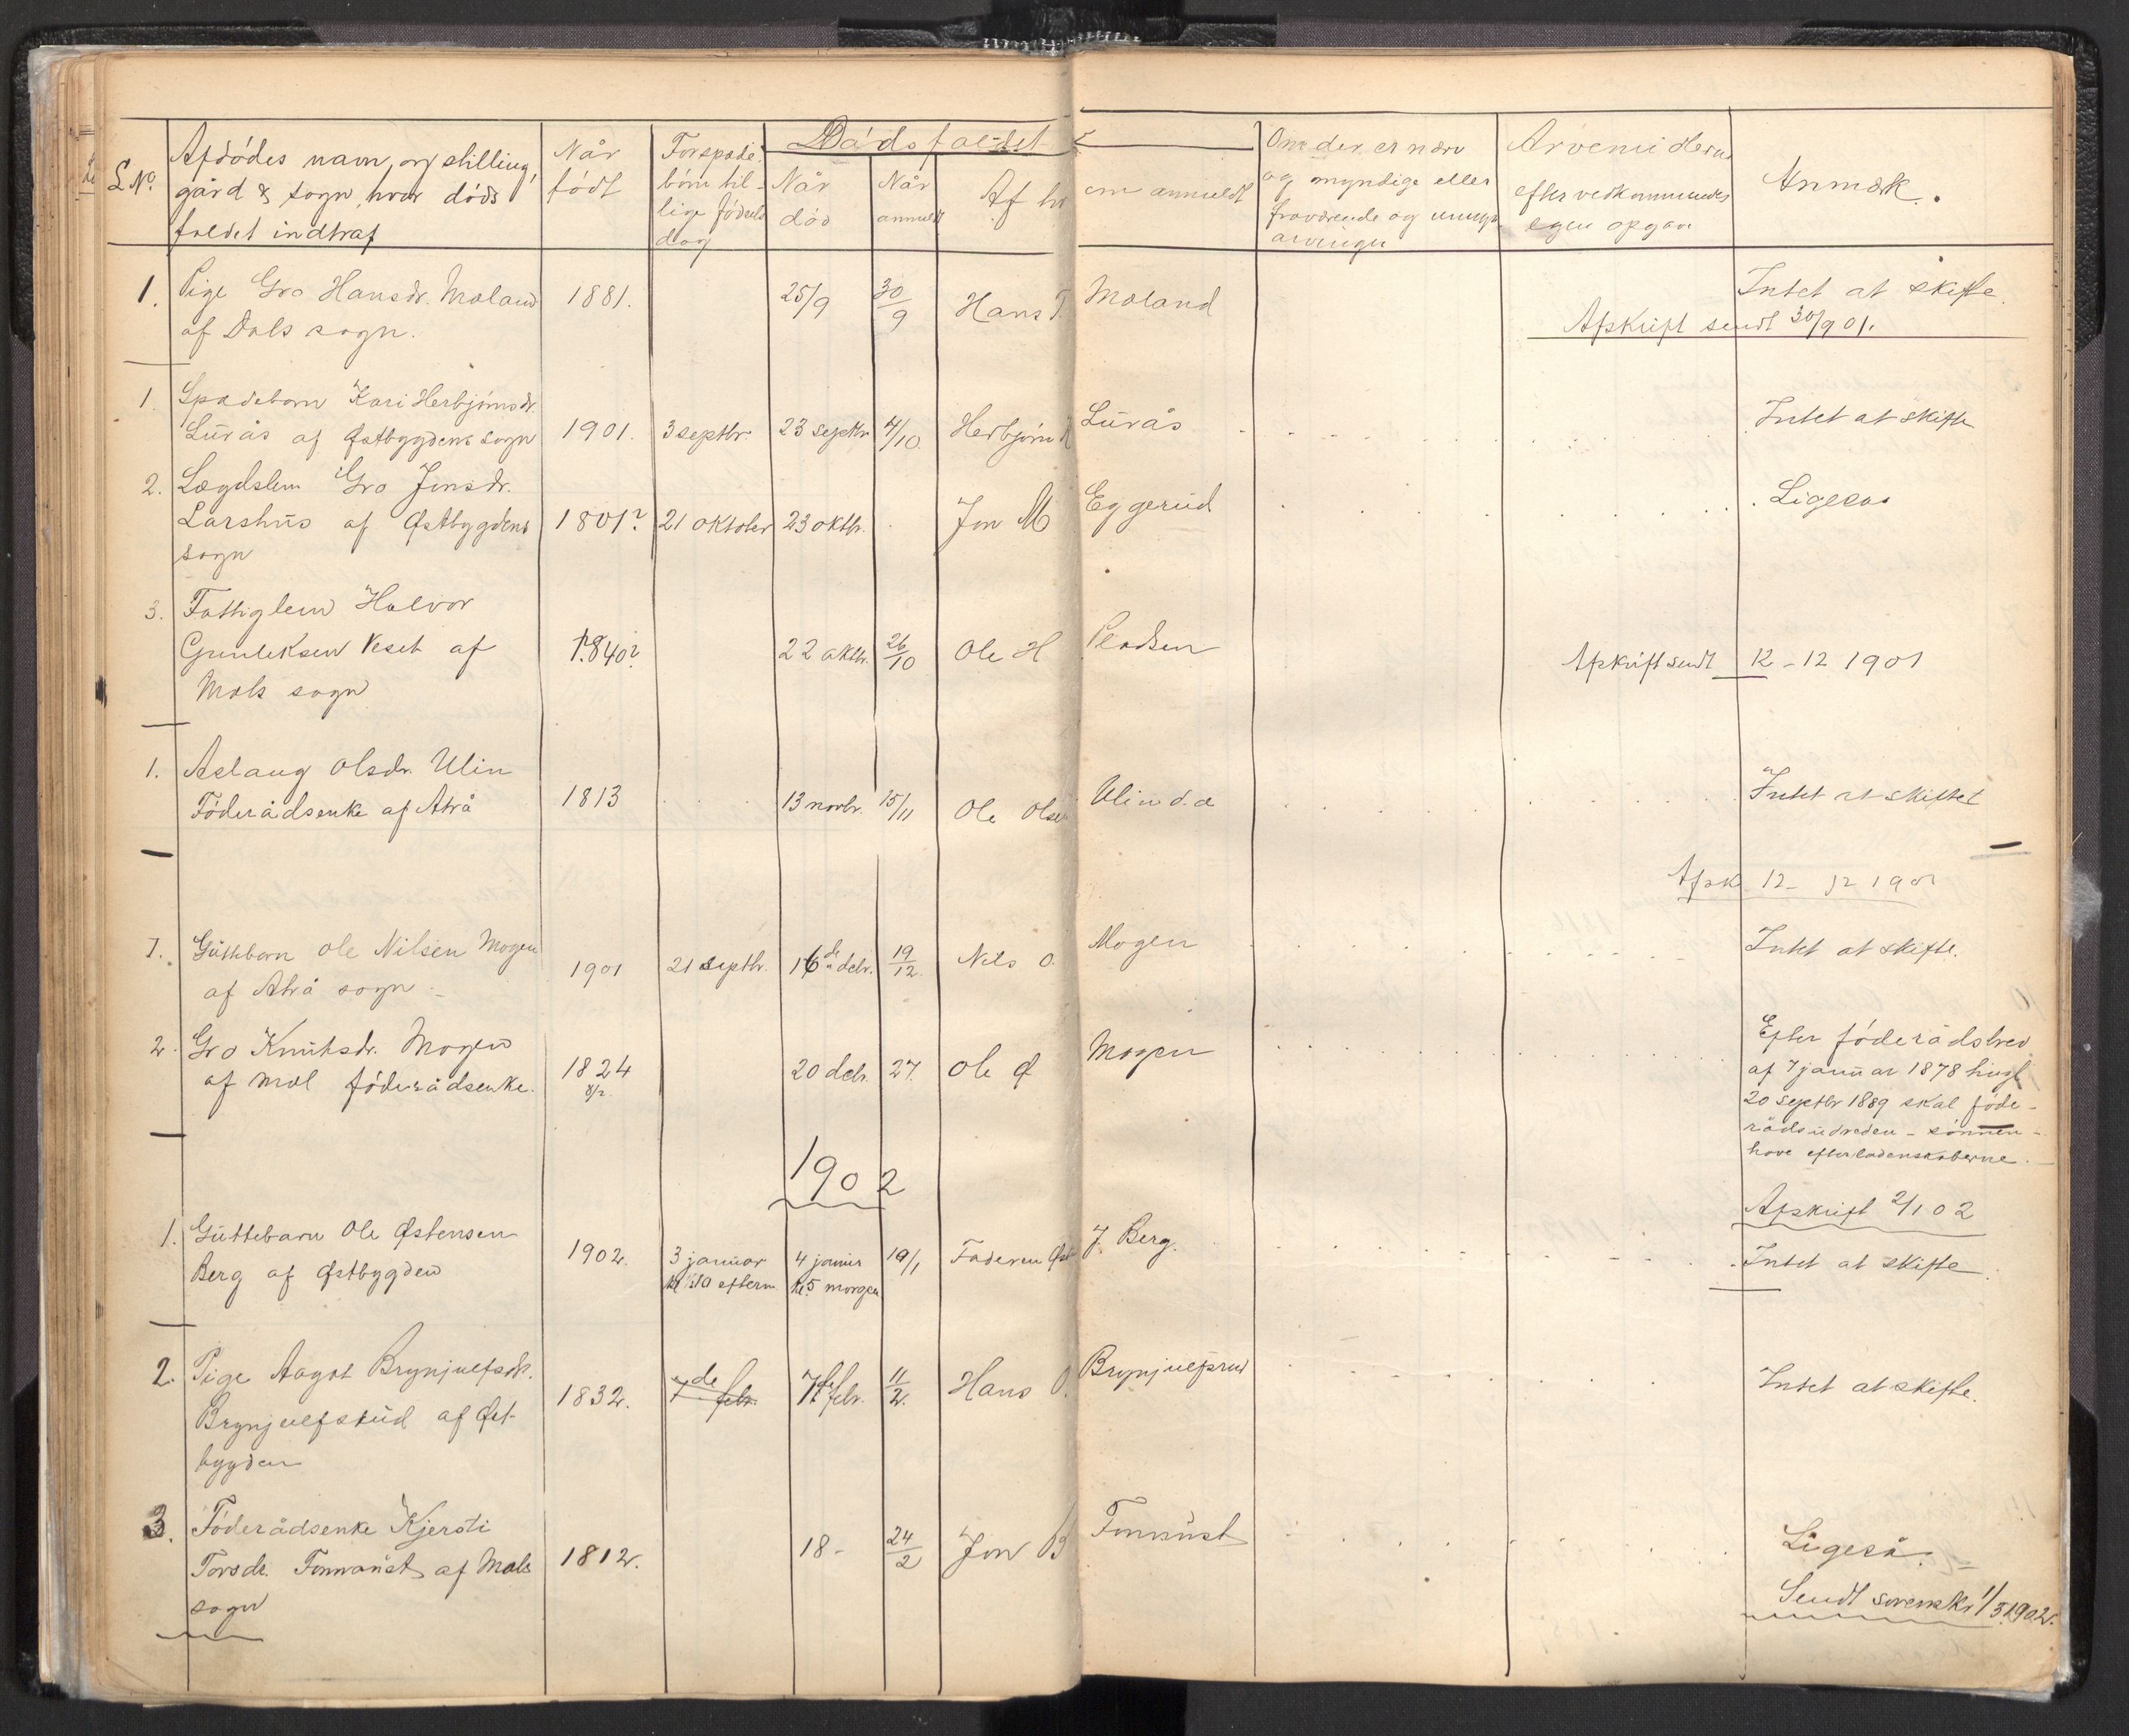 L.No.
Afdødes navn og stilling,
gård & sogn, hvor døds
faldet indtraf
Når
født
For spæde
børn til-
lige fødsels
dag
Dødsfaldet
Når
død
Når
anmeldt
Af hvem anmeldt
Om der er nærv
og myndige eller
fraværende og umynd.
arvinger
Arvemidlerne
efter vedkommendes
egen opgave
Anmærk.
1. Pige Gro Hansdr. Moland 1881. 25/9 30/9 Hans T. Moland Intet at skifte.
af Dals sogn.
Afskrift sendt 30/9 01.
1. Spædebarn Kari Herbjørnsdr.
Lurås af Østbygdens sogn 1901. 3 septbr 23 septbr 4/10. Herbjørn Lurås Intet at skifte
2. Lægdslem Gro Jonsdr.
Larshus af Østbygdens 1801? 21 oktober 23 oktbr. Jon M Eggerud Ligesaa
sogn
3. Fattiglem Halvor
Gunleksen Veset af 1840? 22 oktbr. 26/10 Ole H
Mæls sogn
Afskrift sendt 12-12 1901
1. Aslaug Olsdr. Ulin
Føderådsenke af Atrå 1813 13 novbr. 15/11 Ole Olsen Ulin d.a Intet at skiftet
Afsk 12-12 1901
1. Guttebarn Ole Nilsen Mogen 1901 21 septbr. 16de decbr. 19/12. Nils O. Mogen Intet at skifte.
af Atrå sogn
2. Gro Knutsdr. Mogen
af Mæl føderådsenke. 1824 8/2. 20 decbr. 27. Ole Ø Mogen
Efter føderådsbrev
af 7 januar 1878 tingl
20 septbr 1889 skal føde-
rådsudreden - sønnen -
have efterladenskaberne.
1902
Afskrift 2/1 02
1. Guttebarn Ole Østensen
Berg af Østbygden 1902. 3 januar 4 januar 10/1 Faderen Øst J. Berg. Intet at skifte.
kl. 10 efterm kl. 5 morgen
2. Pige Aagot Brynjulfsdr.
Brynjulfsrud af Øst- 1832. 7de febr. 7de febr. 11/2. Hans O. Brynjulfsrud Intet at skifte.
bygden
3. Føderådsenke Kjersti
Torsdr. Tinnaust af Mæls 1812. 18- 24/2 Jon Tinnaust Ligeså.
sogn
Sendt sorenskr 1/3 1902.